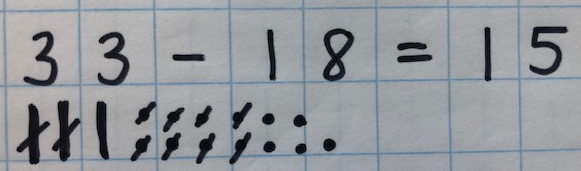 33 - 18 = 15